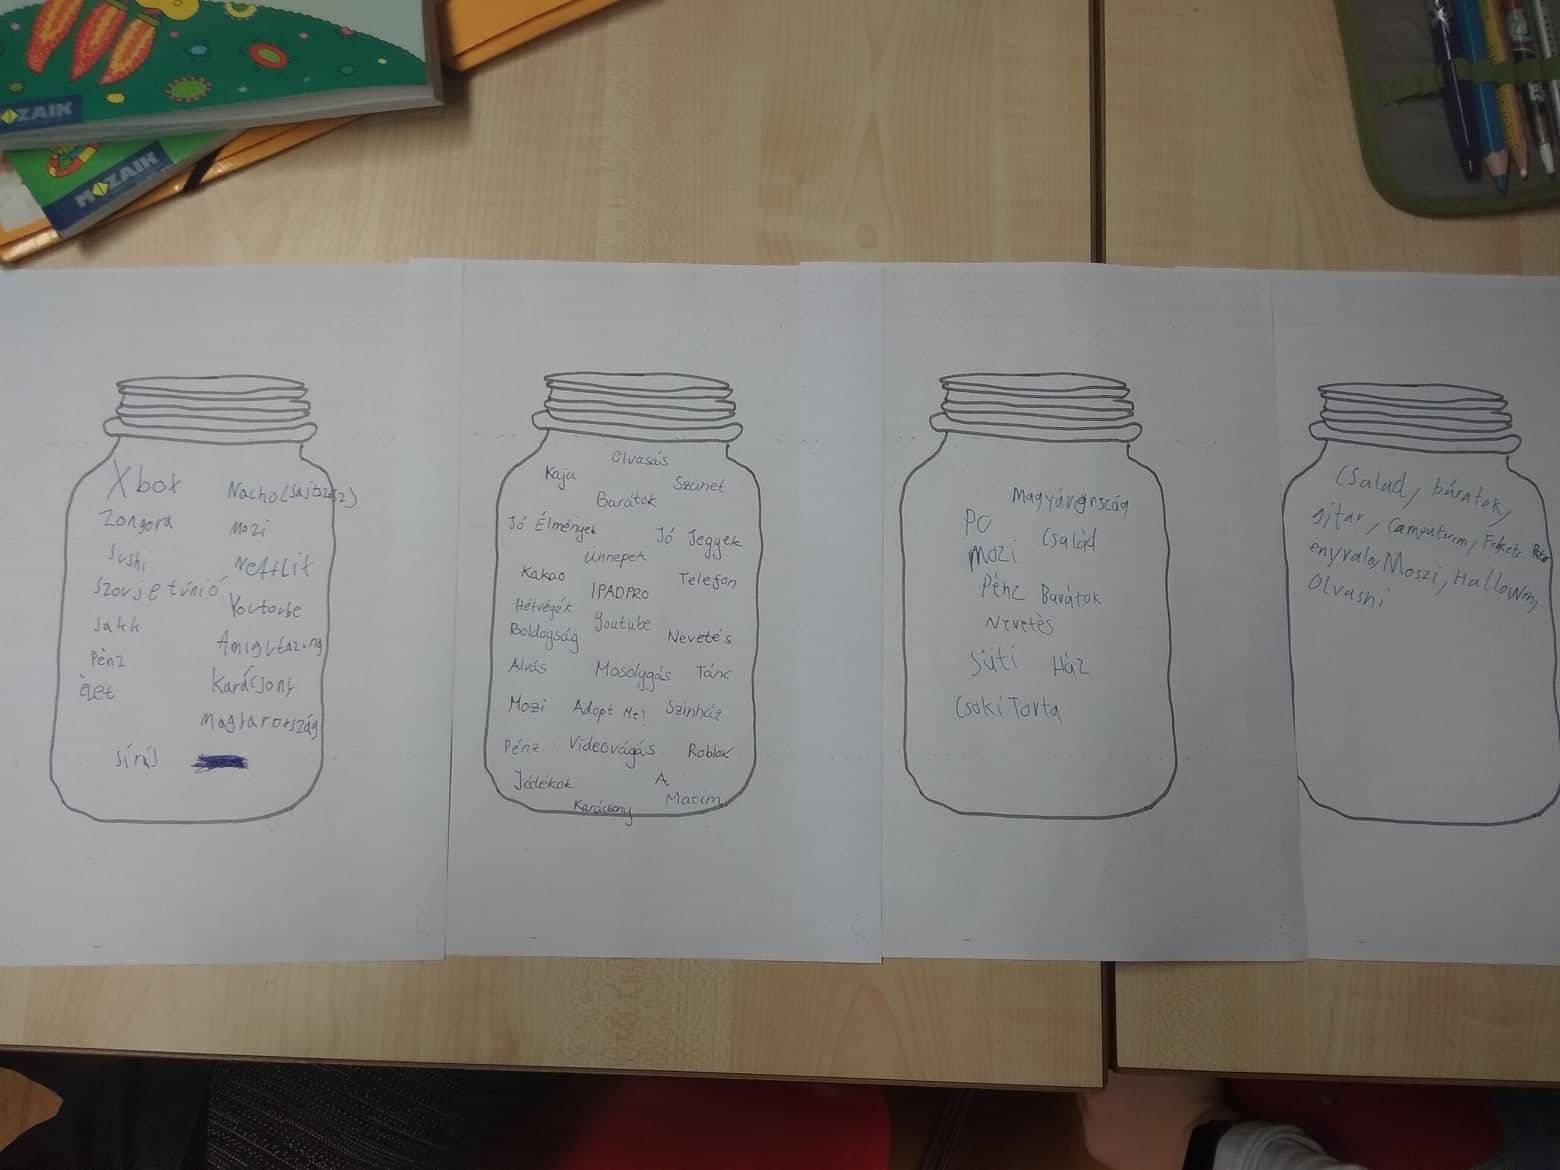 MOZAIK
MOZAIK
Xbox
Zongora
Sushi
Szovjetúnió
Sakk
Pénz
élet
Sírás
Nacho(sajtszósz)
Mozi
Netflit
Youtoube
Karácsony
Magyarország
Olvasás
Kaja
Szünet
Barátok
Jó Élmények
Jó Jegyek
Ünnepek
Kakao
Telefon
IPADPRO
Hétvégék
Youtube
Boldogság
Nevetés
Alvás
Mosolygás
Tánc
Mozi
Adopt Me!
Színház
Pénz
Videóvágás
Roblox
Játékok
A
Macim
Karácsony
Magyarország
PC
Család
Mozi
Pénz
Barátok
Nevetés
Süti
Ház
Csoki Torta
Család, báratok,
gitar, Camputurm, Fekete Péter
enyralo, Moszi, Hallowen,
Olvasni